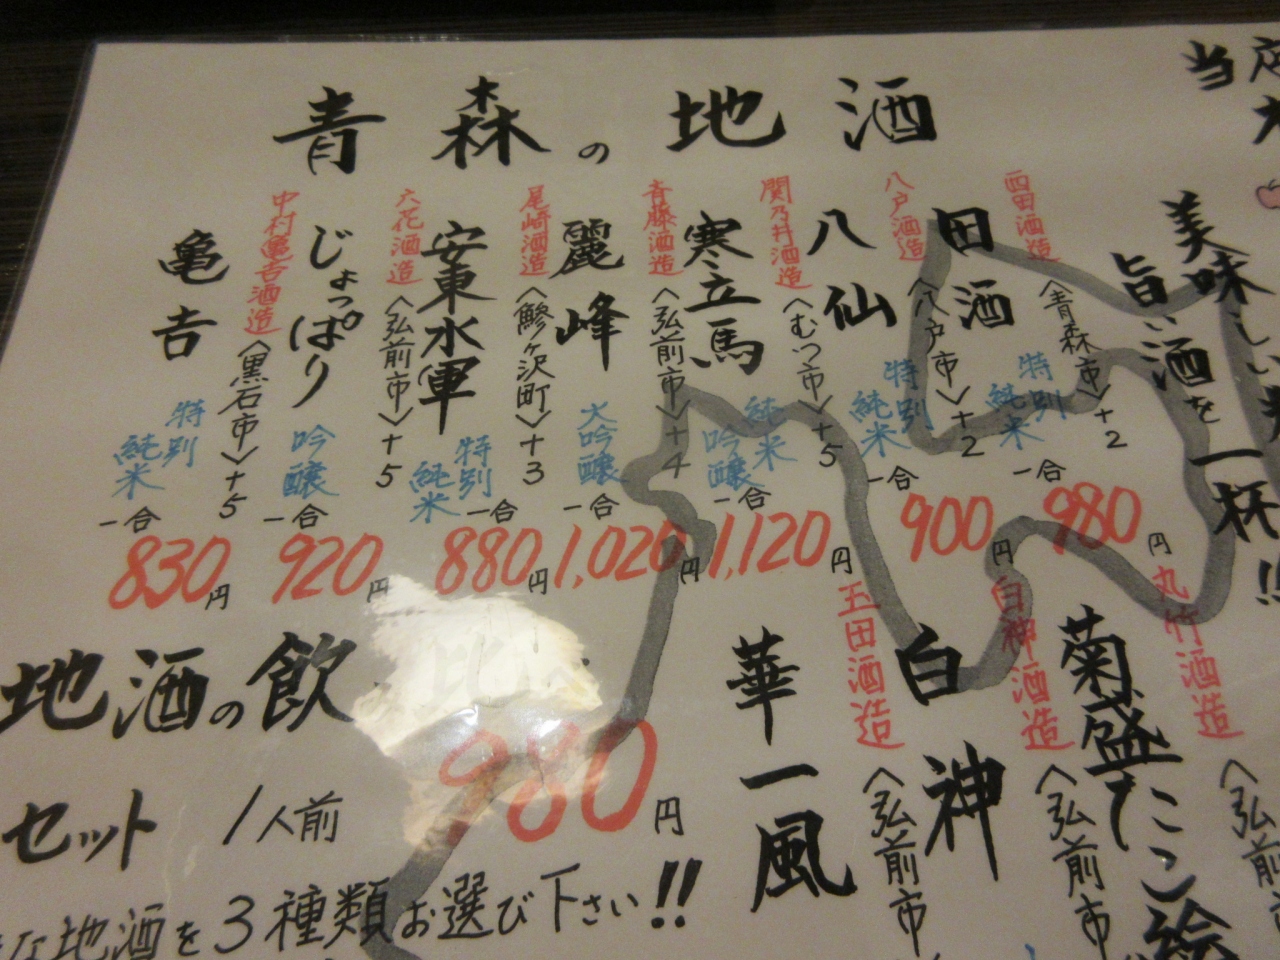 青森の地酒
西田酒造
〈青森市〉+2
田酒
特別
純米
一合
980円
八戸酒造
〈八戸市〉+2
八仙
特別
純米
一合
900円
関乃井酒造
〈むつ市〉+5
寒立馬
純米
吟醸
一合
1,120円
斉藤酒造
〈弘前市〉+4
麗峰
大吟醸
一合
1,020円
尾崎酒造
〈鰺ヶ沢町〉+3
安東水軍
特別
純米
一合
880円
六花酒造
〈弘前市〉+5
じょっぱり
吟醸
一合
920円
中村亀吉酒造
〈黒石市〉+5
亀吉
特別
純米
一合
830円
当店
美味しい
旨い酒を一杯!!
丸竹酒造
〈弘前
菊盛たこ絵
白神酒造
〈弘前市
白神
玉田酒造
〈弘前市
華一風
地酒の飲
セット 1人前 980円
な地酒を3種類お選び下さい!!